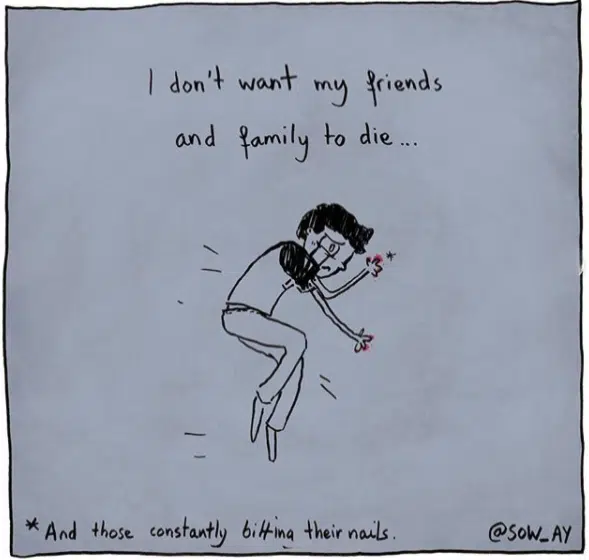 I don't want my friends
and family to die...
*
* And those constantly bitting their nails.
@SOW_AY